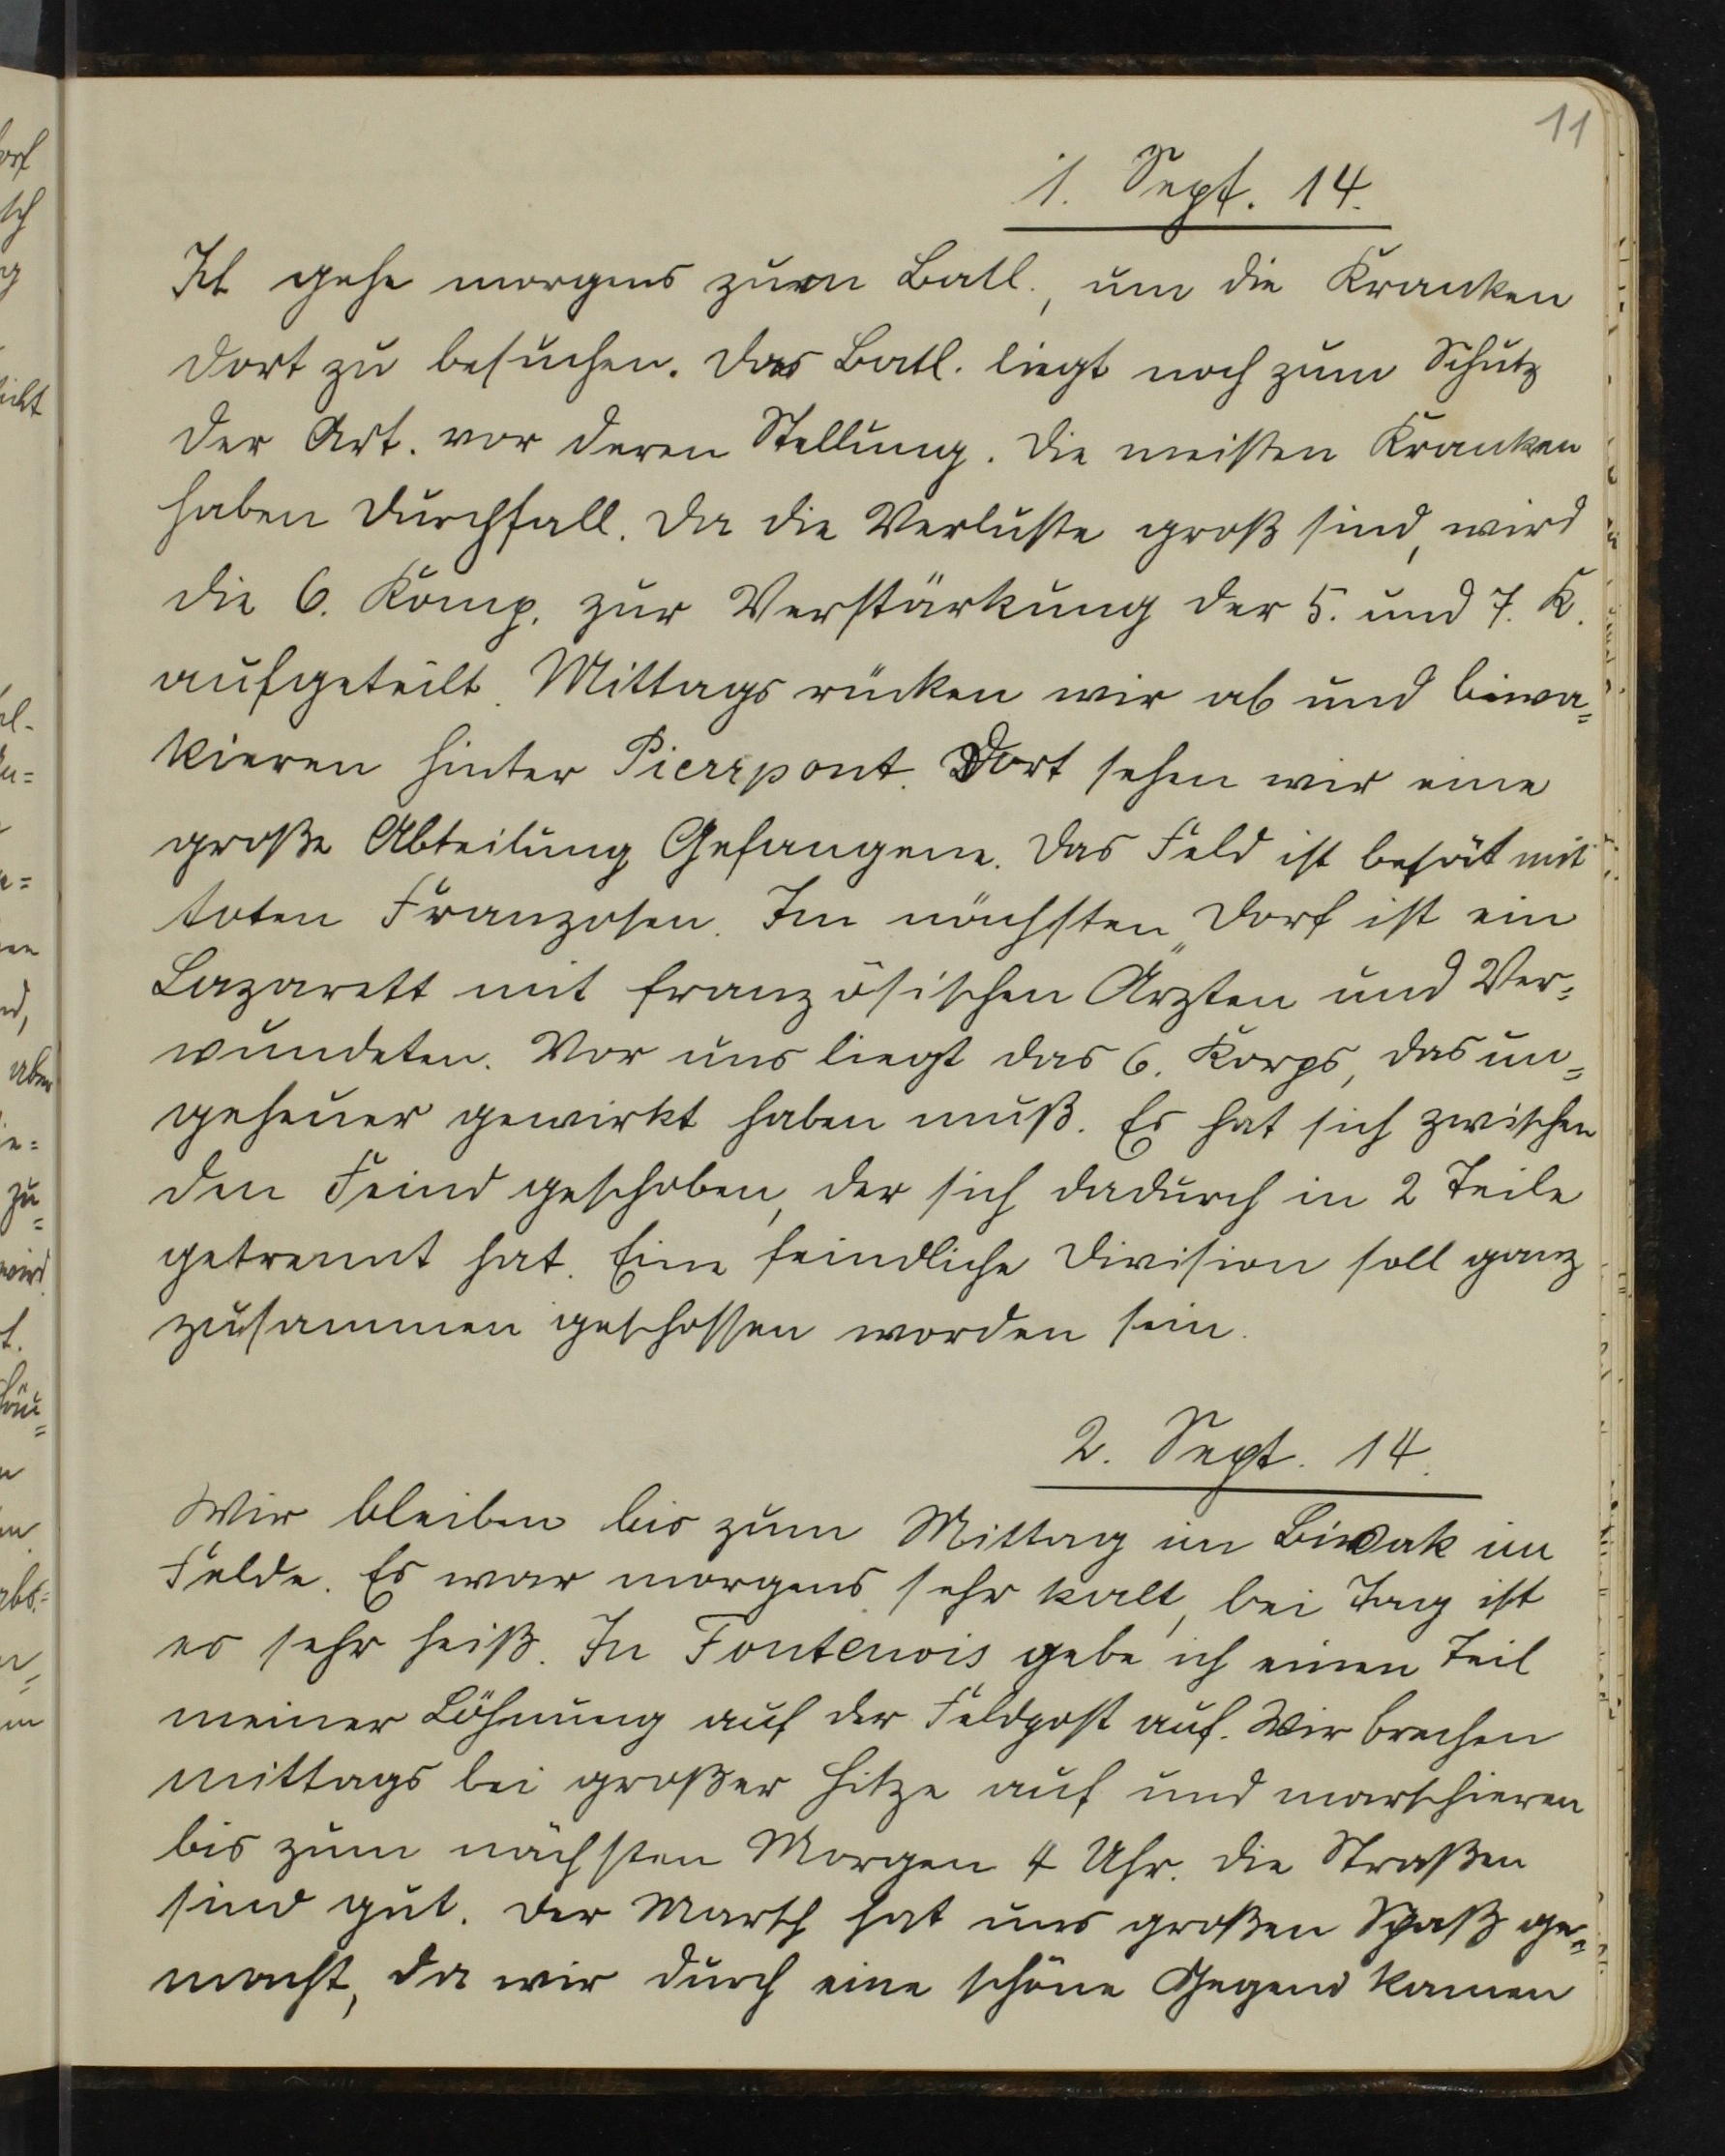 11
1. Sept. 14.
Ich gehe morgens zum Batl., um die Kranken
dort zu besuchen. Das Batl. liegt noch zum Schutz
der Art. vor deren Stellung. Die meisten Kranken
haben Durchfall. Da die Verluste groß sind, wird
die 6. Komp. zur Verstärkung der 5. und 7. K.
aufgeteilt. Mittags rücken wir ab und biwa=
kieren hinter Pierrpont. Dort sehen wir eine
große Abteilung Gefangene. Das Feld ist besät mit
toten Franzosen. Im nächsten Dorf ist ein
Lazarett mit französischen Ärzten und Ver=
wundeten. Vor uns liegt das 6. Korps, das un=
geheuer gewirkt haben muß. Es hat sich zwischen
den Feind geschoben, der sich dadurch in 2 Teile
getrennt hat. Eine feindliche Division soll ganz
zusammen geschossen worden sein.
2. Sept. 14.
Wir bleiben bis zum Mittag im Biwak im
Felde. Es war morgens sehr kalt, bei Tag ist
es sehr heiß. In Fontenois gebe ich einen Teil
meiner Löhnung auf der Feldpost auf. Wir brechen
mittags bei großer Hitze auf und marschieren
bis zum nächsten Morgen 4 Uhr. Die Straßen
sind gut. Der Marsch hat uns großen Spaß ge=
macht, da wir durch eine schöne Gegend kamen